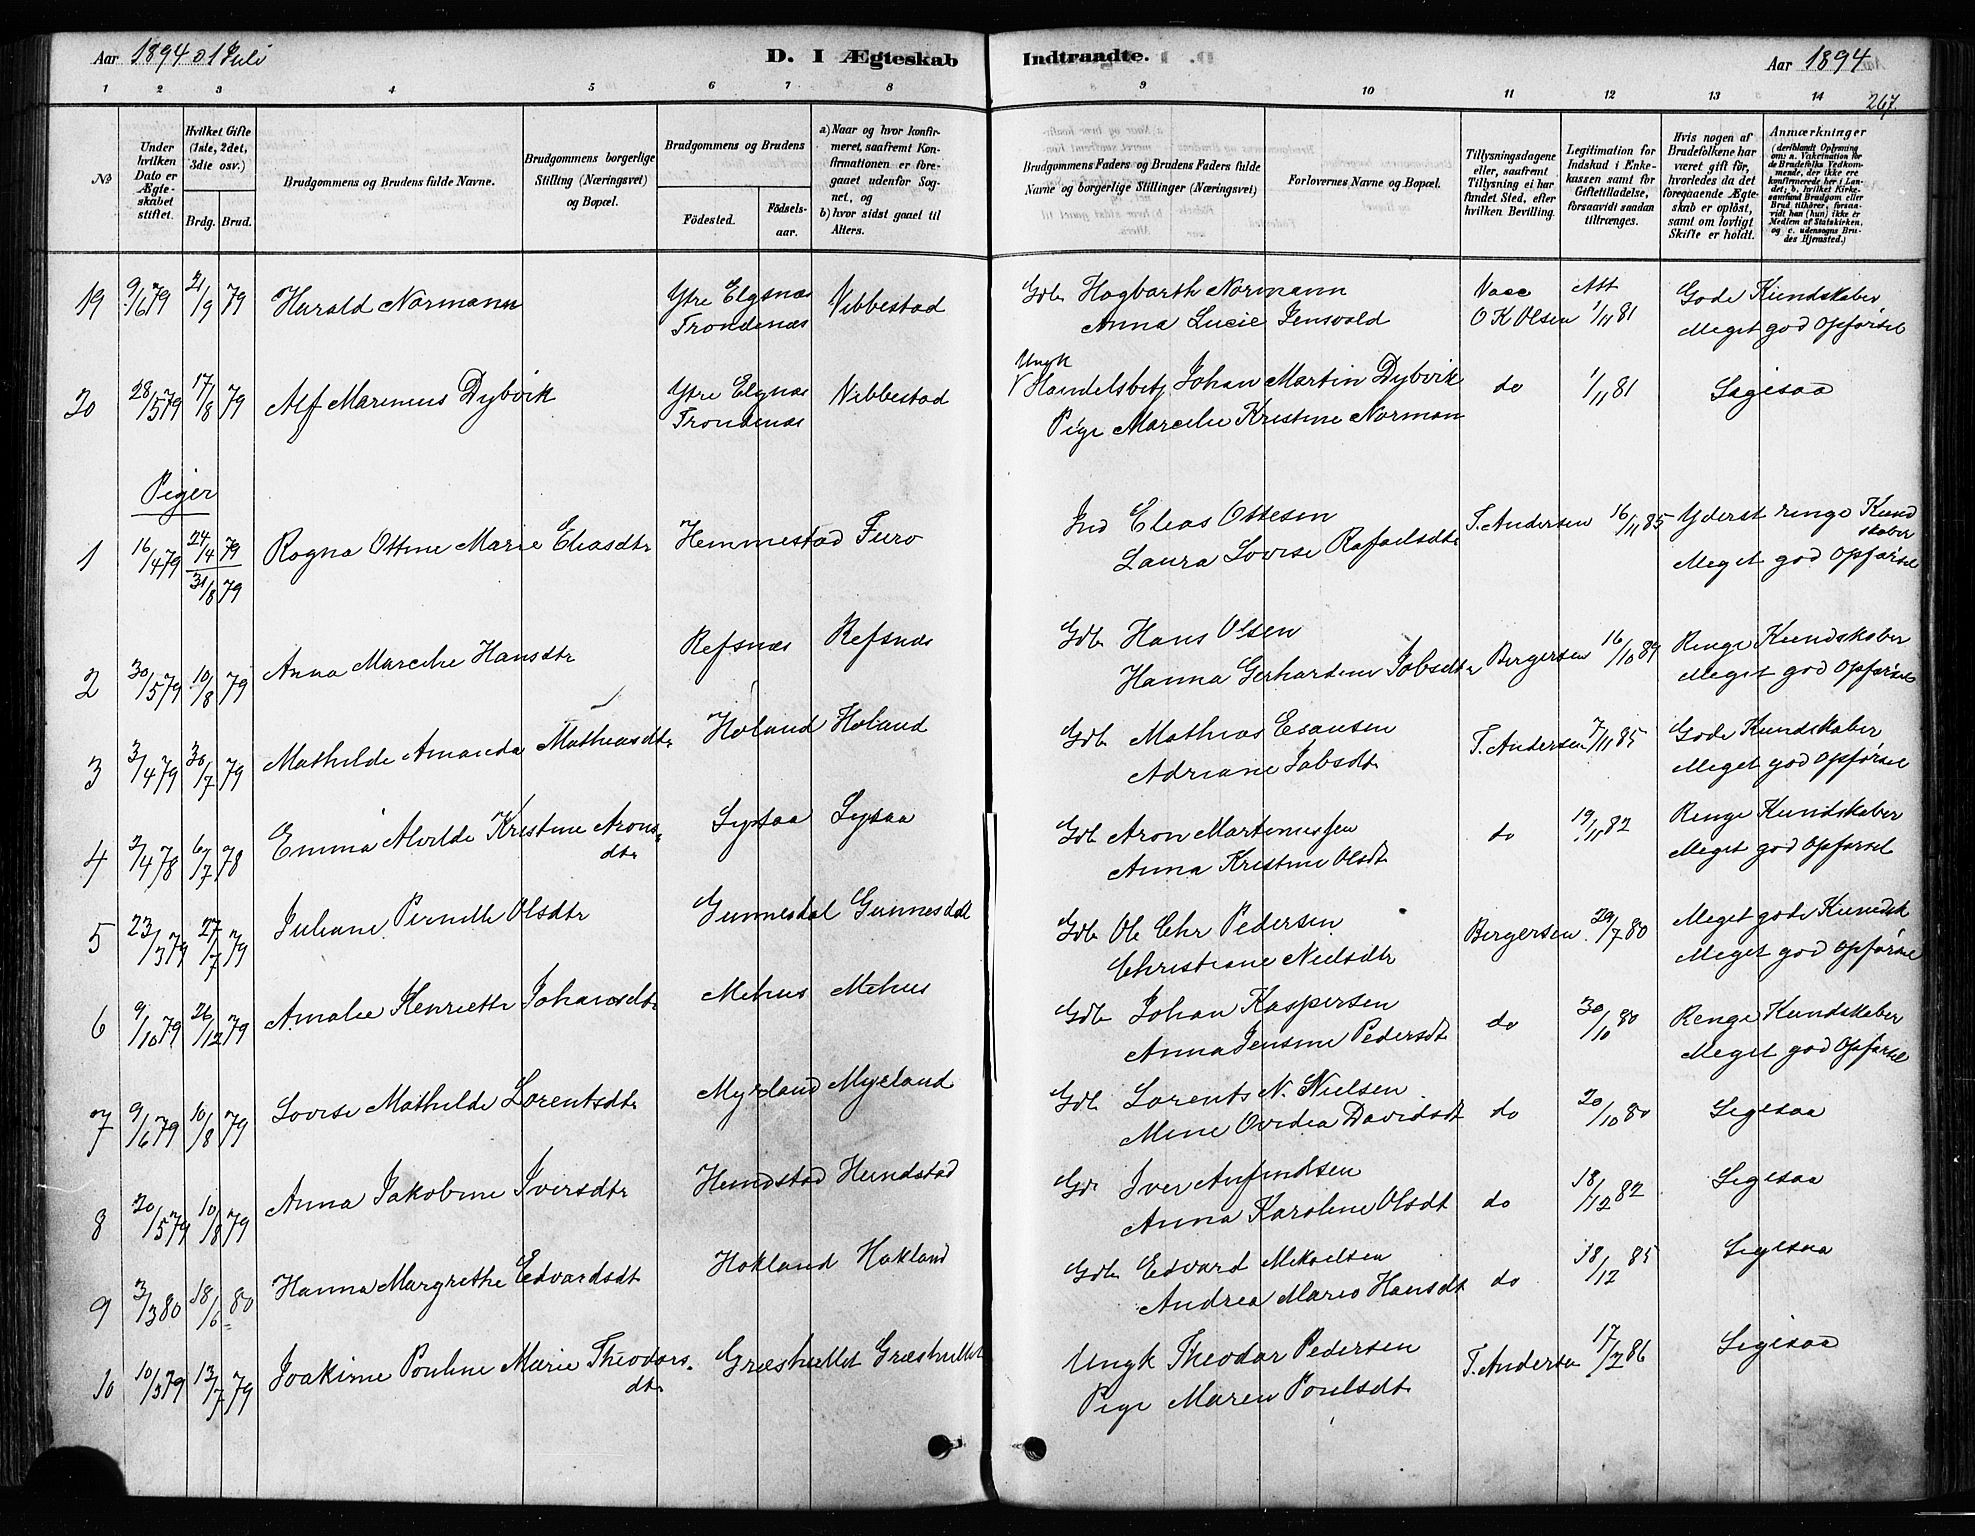 Aar 1894 01 Juli
D. I Ægteskab
Indtraadte.
Aar 1894
1 2 3 4 5 6 7 8
9 10 11 12 13 14 267.
No
Under hvilken Dato er Ægteskabet stiftet.
Hvilket Gifte (1ste, 2det, 3die osv.)
Brdg. Brud.
Brudgommens og Brudens fulde Navne.
Brudgommens borgerlige Stilling (Næringsvei) og Bopæl.
Brudgommens og Brudens
Fødested.
Fødselsaar.
a) Naar og hvor konfirmeret, saafremt Konfirmationen er foregaaet udenfor Sognet, og
b) hvor sidst gaaet til Alters.
Brudgommens Faders og Brudens Faders fulde Navne og borgerlige Stillinger (Næringsvei)
Forlovernes Navne og Bopæl.
Tillysningsdagene eller, saafremt Tillysning ei har fundet Sted, efter hvilken Bevilling.
Legitimation for Indskud i Enkekassen samt for Giftetilladelse, forsaavidt saadan tiltrænges.
Hvis nogen af Brudefolkene har været gift før, hvorledes da det foregaaende Ægteskab er opløst, samt om lovligt Skifte er holdt.
Anmærkninger (deriblandt Oplysning om: a. Vakcination for de Brudefolks Vedkommende, der ikke ere konfirmerede her i Landet; b. hvilket Kirkesamfund Brudgom eller Brud tilhører, forsaavidt han (hun) ikke er Medlem af Statskirken, og c. udensogns Brudes Hjemsted.)
19 9/6 79 21/9 79 Harald Normann Ytre Elgsnæs Vibbestad Gdb Hagbarth Normann Vacc Att Gode Kundskaber
Trondenæs Anna Lucie Jensvold O K Olsen 1/11 81 Meget god Opførsel
Ungk
20 28/5 79 17/8 79 Alf Marinius Dybvik Ytre Elgnæs Vibbestad Handelsbetj Johan Martin Dybvik do 1/11 81 Ligesaa
Trondenæs Pige Marcelie Kristine Norman
Piger
1 16/4 79 24/4 79 Ragna Ottine Marie Eliasdtr Hemmestad Furo Ind Elias Ottesen T. Andersen 16/11 85 Yderst ringe Kund
skaber
31/8 79 Laura Lovise Rafaelsdtr Meget god Opførsel
2 30/5 79 10/8 79 Anna Marcelie Hansdtr Refsnæs Refsnæs Gdb Hans Olsen Bergersen 16/10 89 Ringe Kundskaber
Hanna Gerhardine Jobsdtr Meget god Opførsel
3 3/4 79 30/7 79 Mathilde Amanda Mathiasdtr Holand Holand Gdb Mathias Esausen T. Andersen 7/11 85 Gode Kundskaber
Adriane Jobsdtr Meget god Opførsel
4 2/4 78 6/7 78 Emma Alvilde Kristine Arons- Lysaa Lysaa Gdb Aron Martinussen do 19/11 82 Ringe Kundskaber
dtr Anna Kristine Olsdt Meget god Opførsel
5 23/3 79 27/7 79 Juliane Pernille Olsdtr Gunnesdal Gunnesdal Gdb Ole Chr Pedersen Bergersen 29/7 80 Meget gode Kundsk
Christiane Nielsdtr Meget god Opførsel
6 9/10 79 26/12 79 Amalie Henriette Johansdtr Mehus Mehus Gdb Johan Kaspersen do 30/10 80 Ringe Kundskaber
Anna Jensine Pedersdt Meget god Opførsel
7 9/6 79 10/8 79 Lovise Mathilde Lorentsdtr Myrland Myrland Gdb Lorents N. Nielsen do 20/10 80 Ligesaa
Mine Ovidia Davidsdt
8 20/5 79 10/8 79 Anna Jakobine Iversdtr Hundstad Hundstad Gdr Iver Anfindsen do 18/12 82 Ligesaa
Anna Karoline Olsdt
9 3/3 80 18/6 80 Hanna Margrethe Edvardsdt Hokland Hokland Gdb Edvard Mikaelsen do 18/12 85 Ligesaa
Andrea Maria Hansdt
10 10/3 79 13/7 79 Joakime Pouline Marie Theodors- Græshullet Græshullet Ungk Theodor Pedersen T. Andersen 17/7 86 Ligesaa
dtr Pige Maren Poulsdt